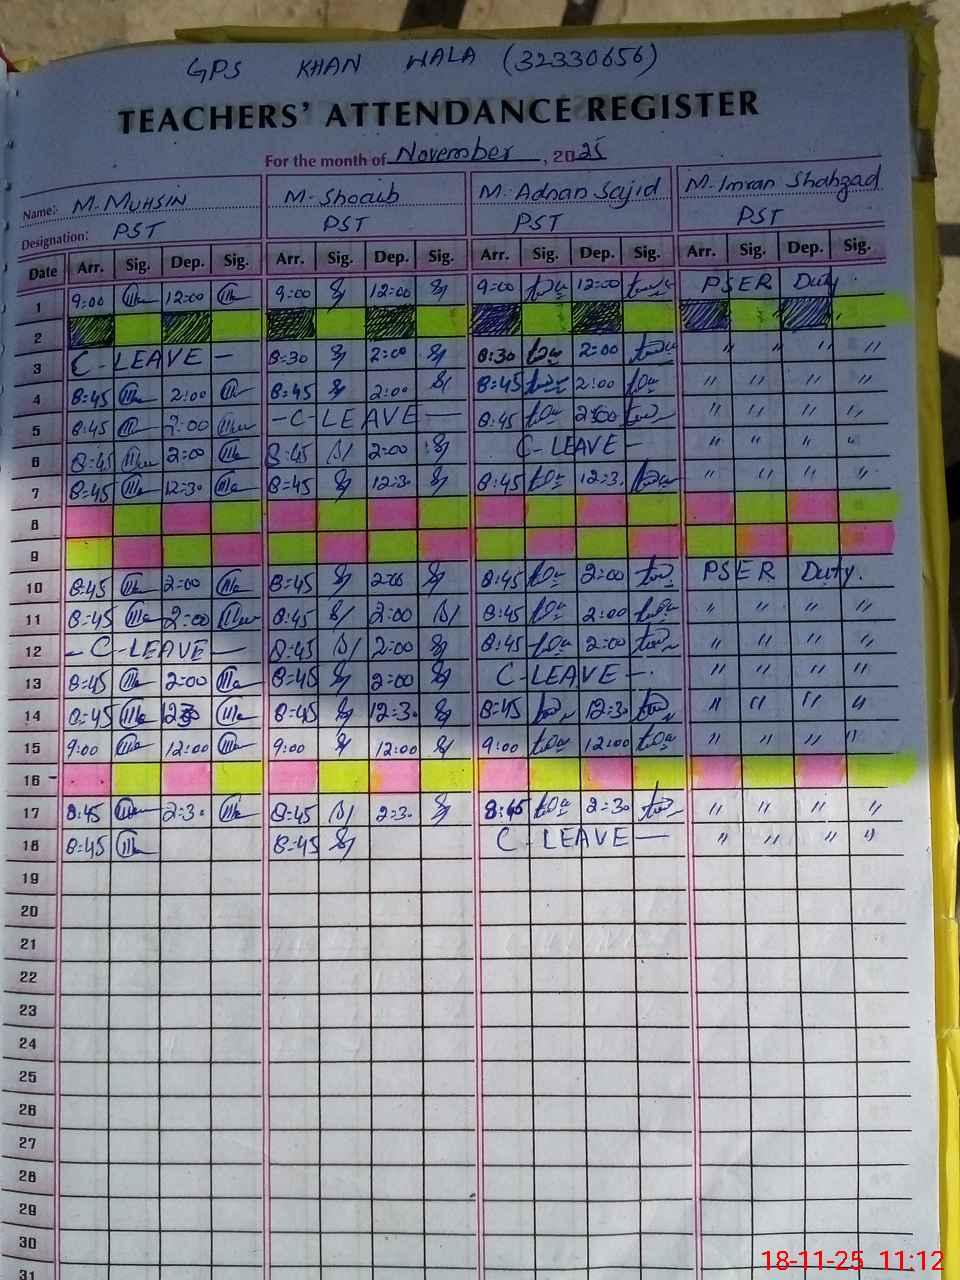 GPS KHAN WALA (32330656)
TEACHERS' ATTENDANCE REGISTER
For the month of November, 2025
Name: M. MUHSIN M. Shoaib M. Adnan Sajid M. Imran Shahzad
Designation: PST PST PST PST
Date Arr. Sig. Dep. Sig. Arr. Sig. Dep. Sig. Arr. Sig. Dep. Sig. Arr. Sig. Dep. Sig.
1 9:00 12:00 9:00 12:00 9:00 12:00 PSER Duty.
2
3 C-LEAVE - 8:30 2:00 8:30 2:00 " " " "
4 8:45 2:00 8:45 2:00 8:45 2:00 " " " "
5 8:45 2:00 -C-LEAVE- 8:45 2:00 " " " "
6 8:45 2:00 8:45 2:00 C-LEAVE - " " " "
7 8:45 12:30 8:45 12:30 8:45 12:30 " " " "
8
9
10 8:45 2:00 8:45 2:00 8:45 2:00 PSER Duty.
11 8:45 2:00 8:45 2:00 8:45 2:00 " " " "
12 - C-LEAVE - 8:45 2:00 8:45 2:00 " " " "
13 8:45 2:00 8:45 2:00 C-LEAVE - " " " "
14 8:45 8:45 12:30 8:45 12:30 " " " "
15 9:00 12:00 9:00 12:00 9:00 12:00 " " " "
16
17 8:45 2:30 8:45 2:30 8:45 2:30 " " " "
18 8:45 8:45 C-LEAVE - " " " "
19
20
21
22
23
24
25
26
27
28
29
30
31
18-11-25 11:12